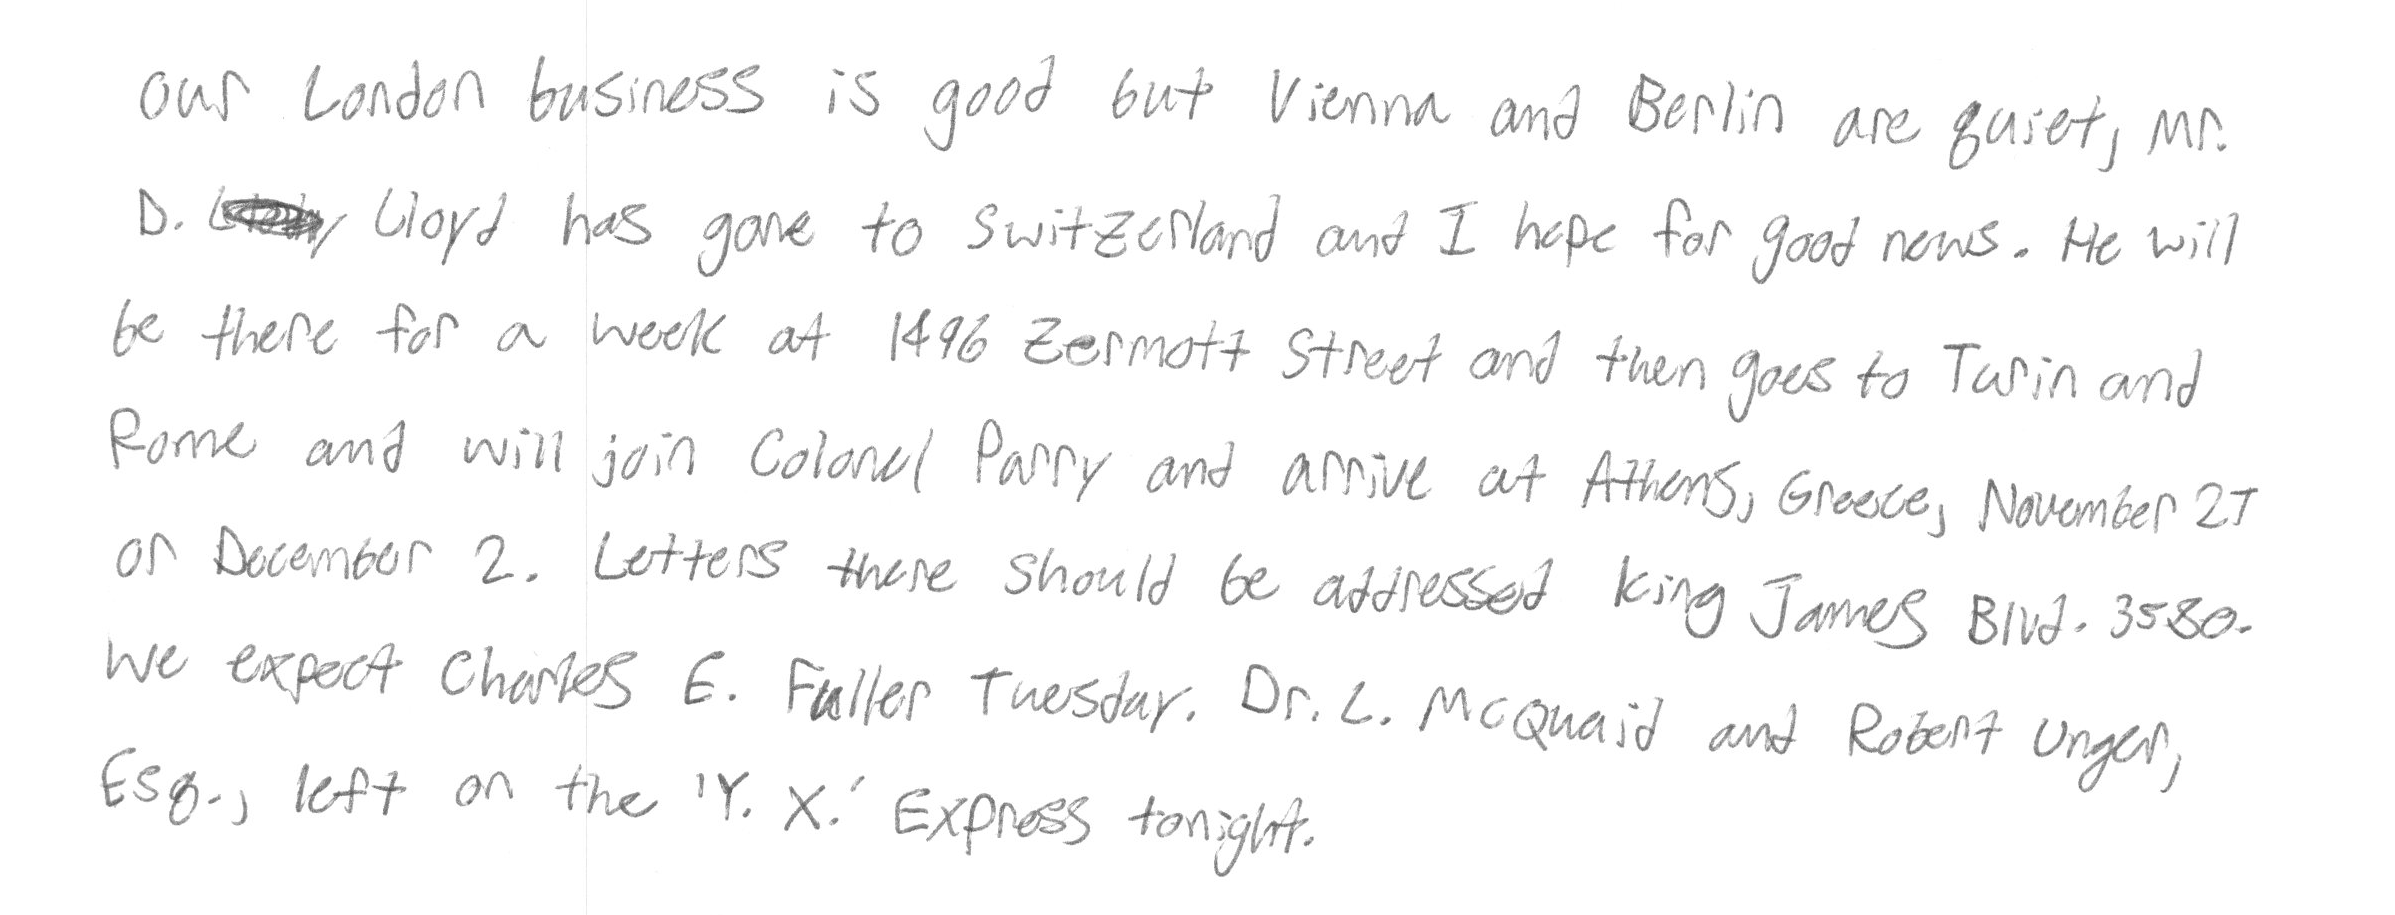 our London business is good but Vienna and Berlin are quiet, Mr.
D. Lloyd has gone to Switzerland and I hope for good news. He will
be there for a week at 1496 Zermott Street and then goes to Turin and
Rome and will join Colonel Parry and arrive at Athens, Greece, November 27
or December 2. Letters there should be addressed King James Blvd. 3580.
We expect Charles E. Fuller Tuesday. Dr. L. McQuaid and Robert Unger,
Esq., left on the 'Y. X.' Express tonight.